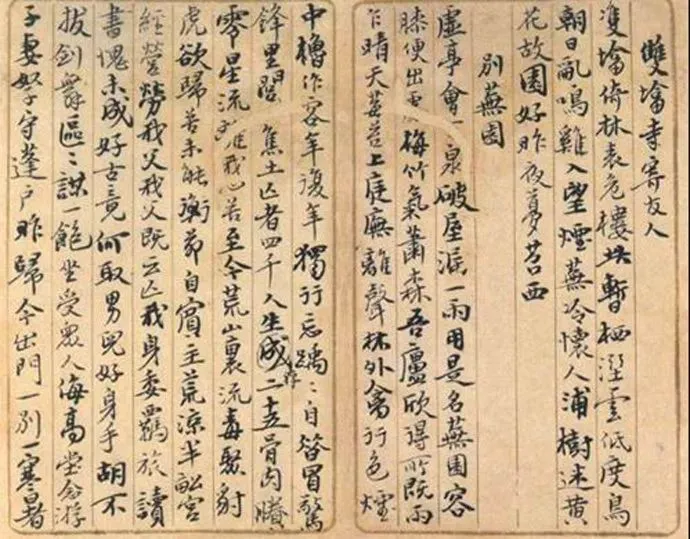 雙墖寺寄友人
隻墖倚林表危樓快暫栖溼雲低度鳥
朝日亂鳴雞入望煙蕪冷懷人浦樹迷黃
花故園好昨夜夢苕西
別蕪園
虛亭會一泉破屋漲一雨用是名蕪園容
膝便出處梅竹氣蕭森吾廬欣得所既雨
乍晴天莓苔上庭廡離聲林外禽行色煙
中櫓作客年復年獨行忘踽〻自咎冒驚
鋒里閭焦土亡者四千人生成二十五骨肉賸
零星流離我心苦至今荒山裏流毒聚豺
虎欲歸苦未能衡茆自賓主荒涼半畝宮
經營勞我父我父既云亡我身委羈旅讀
書愧未成好古竟何取男兒好身手胡不
拔劍舞區〻謀一飽坐受衆人侮高堂念游
子妻孥守蓬戶昨歸今出門一別一寒暑